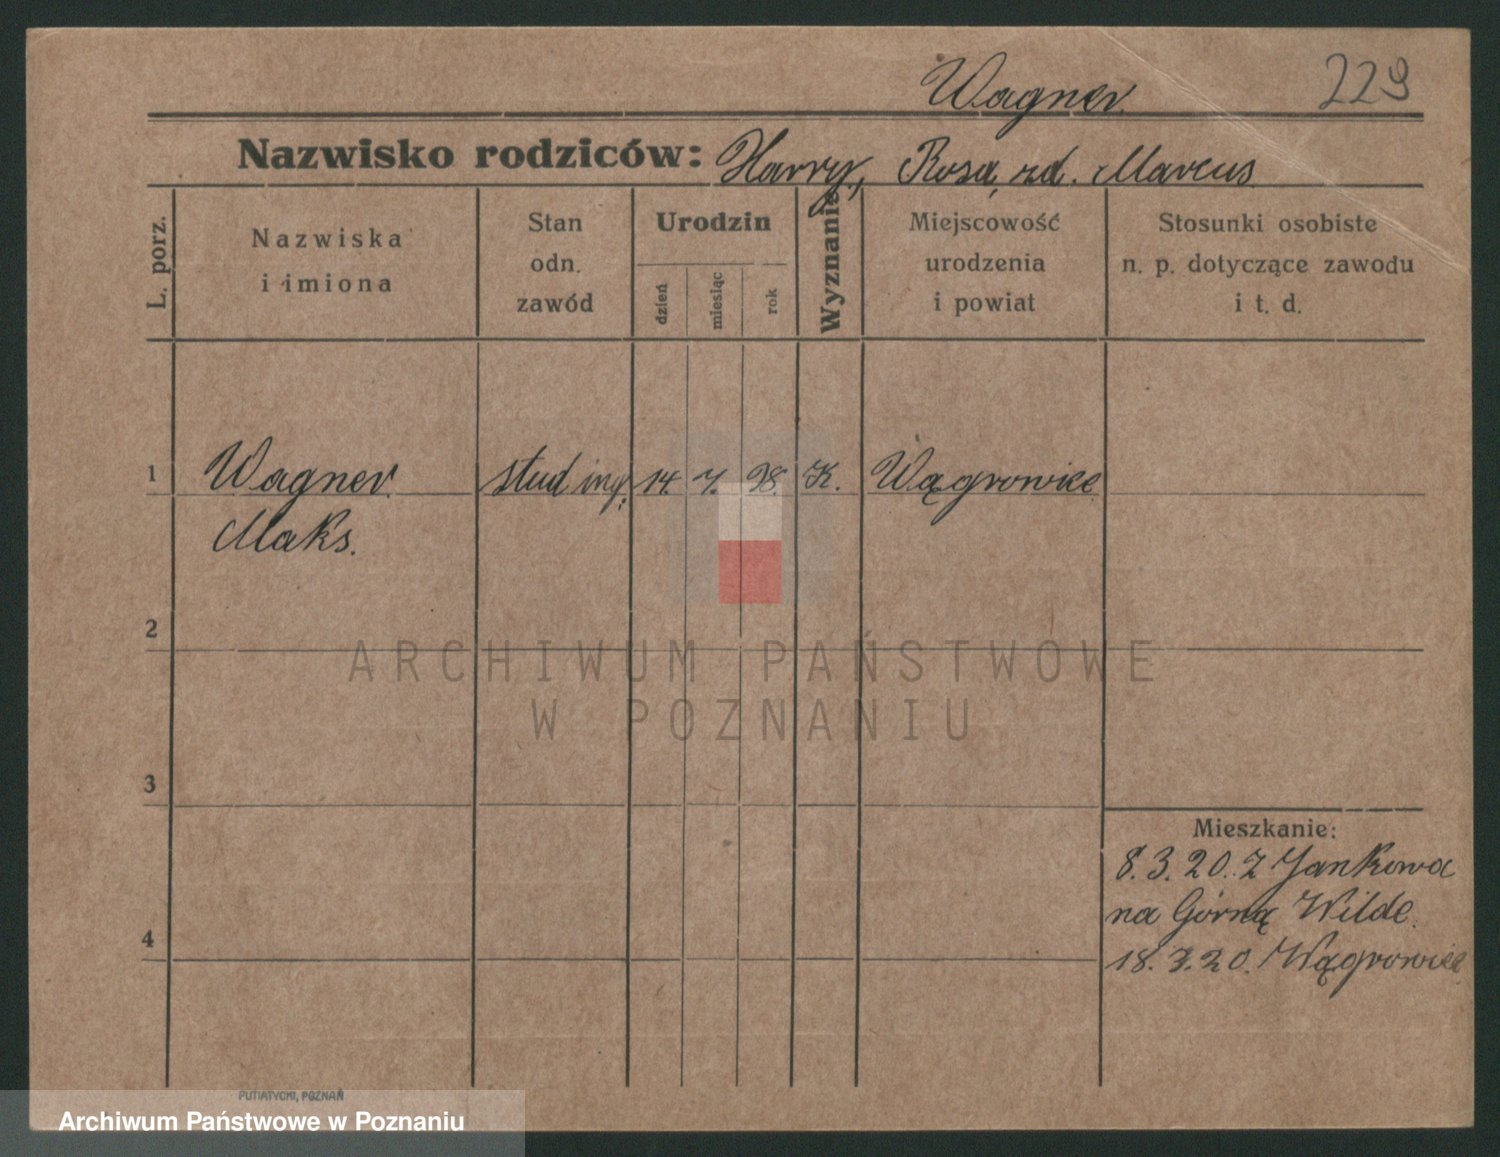 Wagner
229
Nazwisko rodziców: Harry, Rosa, zd. Marcus
L. porz.
Nazwiska
i imiona
Stan
odn.
zawód
Urodzin
dzień
miesiąc
rok
Wyznanie
Miejscowość
urodzenia
i powiat
Stosunki osobiste
n. p. dotyczące zawodu
i t. d.
1 Wagner stud ing. 14. 7. 98. K. Wągrowiec
Maks.
2
ARCHIWUM PAŃSTWOWE
W POZNANIU
3
Mieszkanie:
8. 3. 20. z Jankowa
na Górną Wilde.
4
18. 3. 20. Wągrowiec
PUTIATYCKI, POZNAŃ
Archiwum Państwowe w Poznaniu